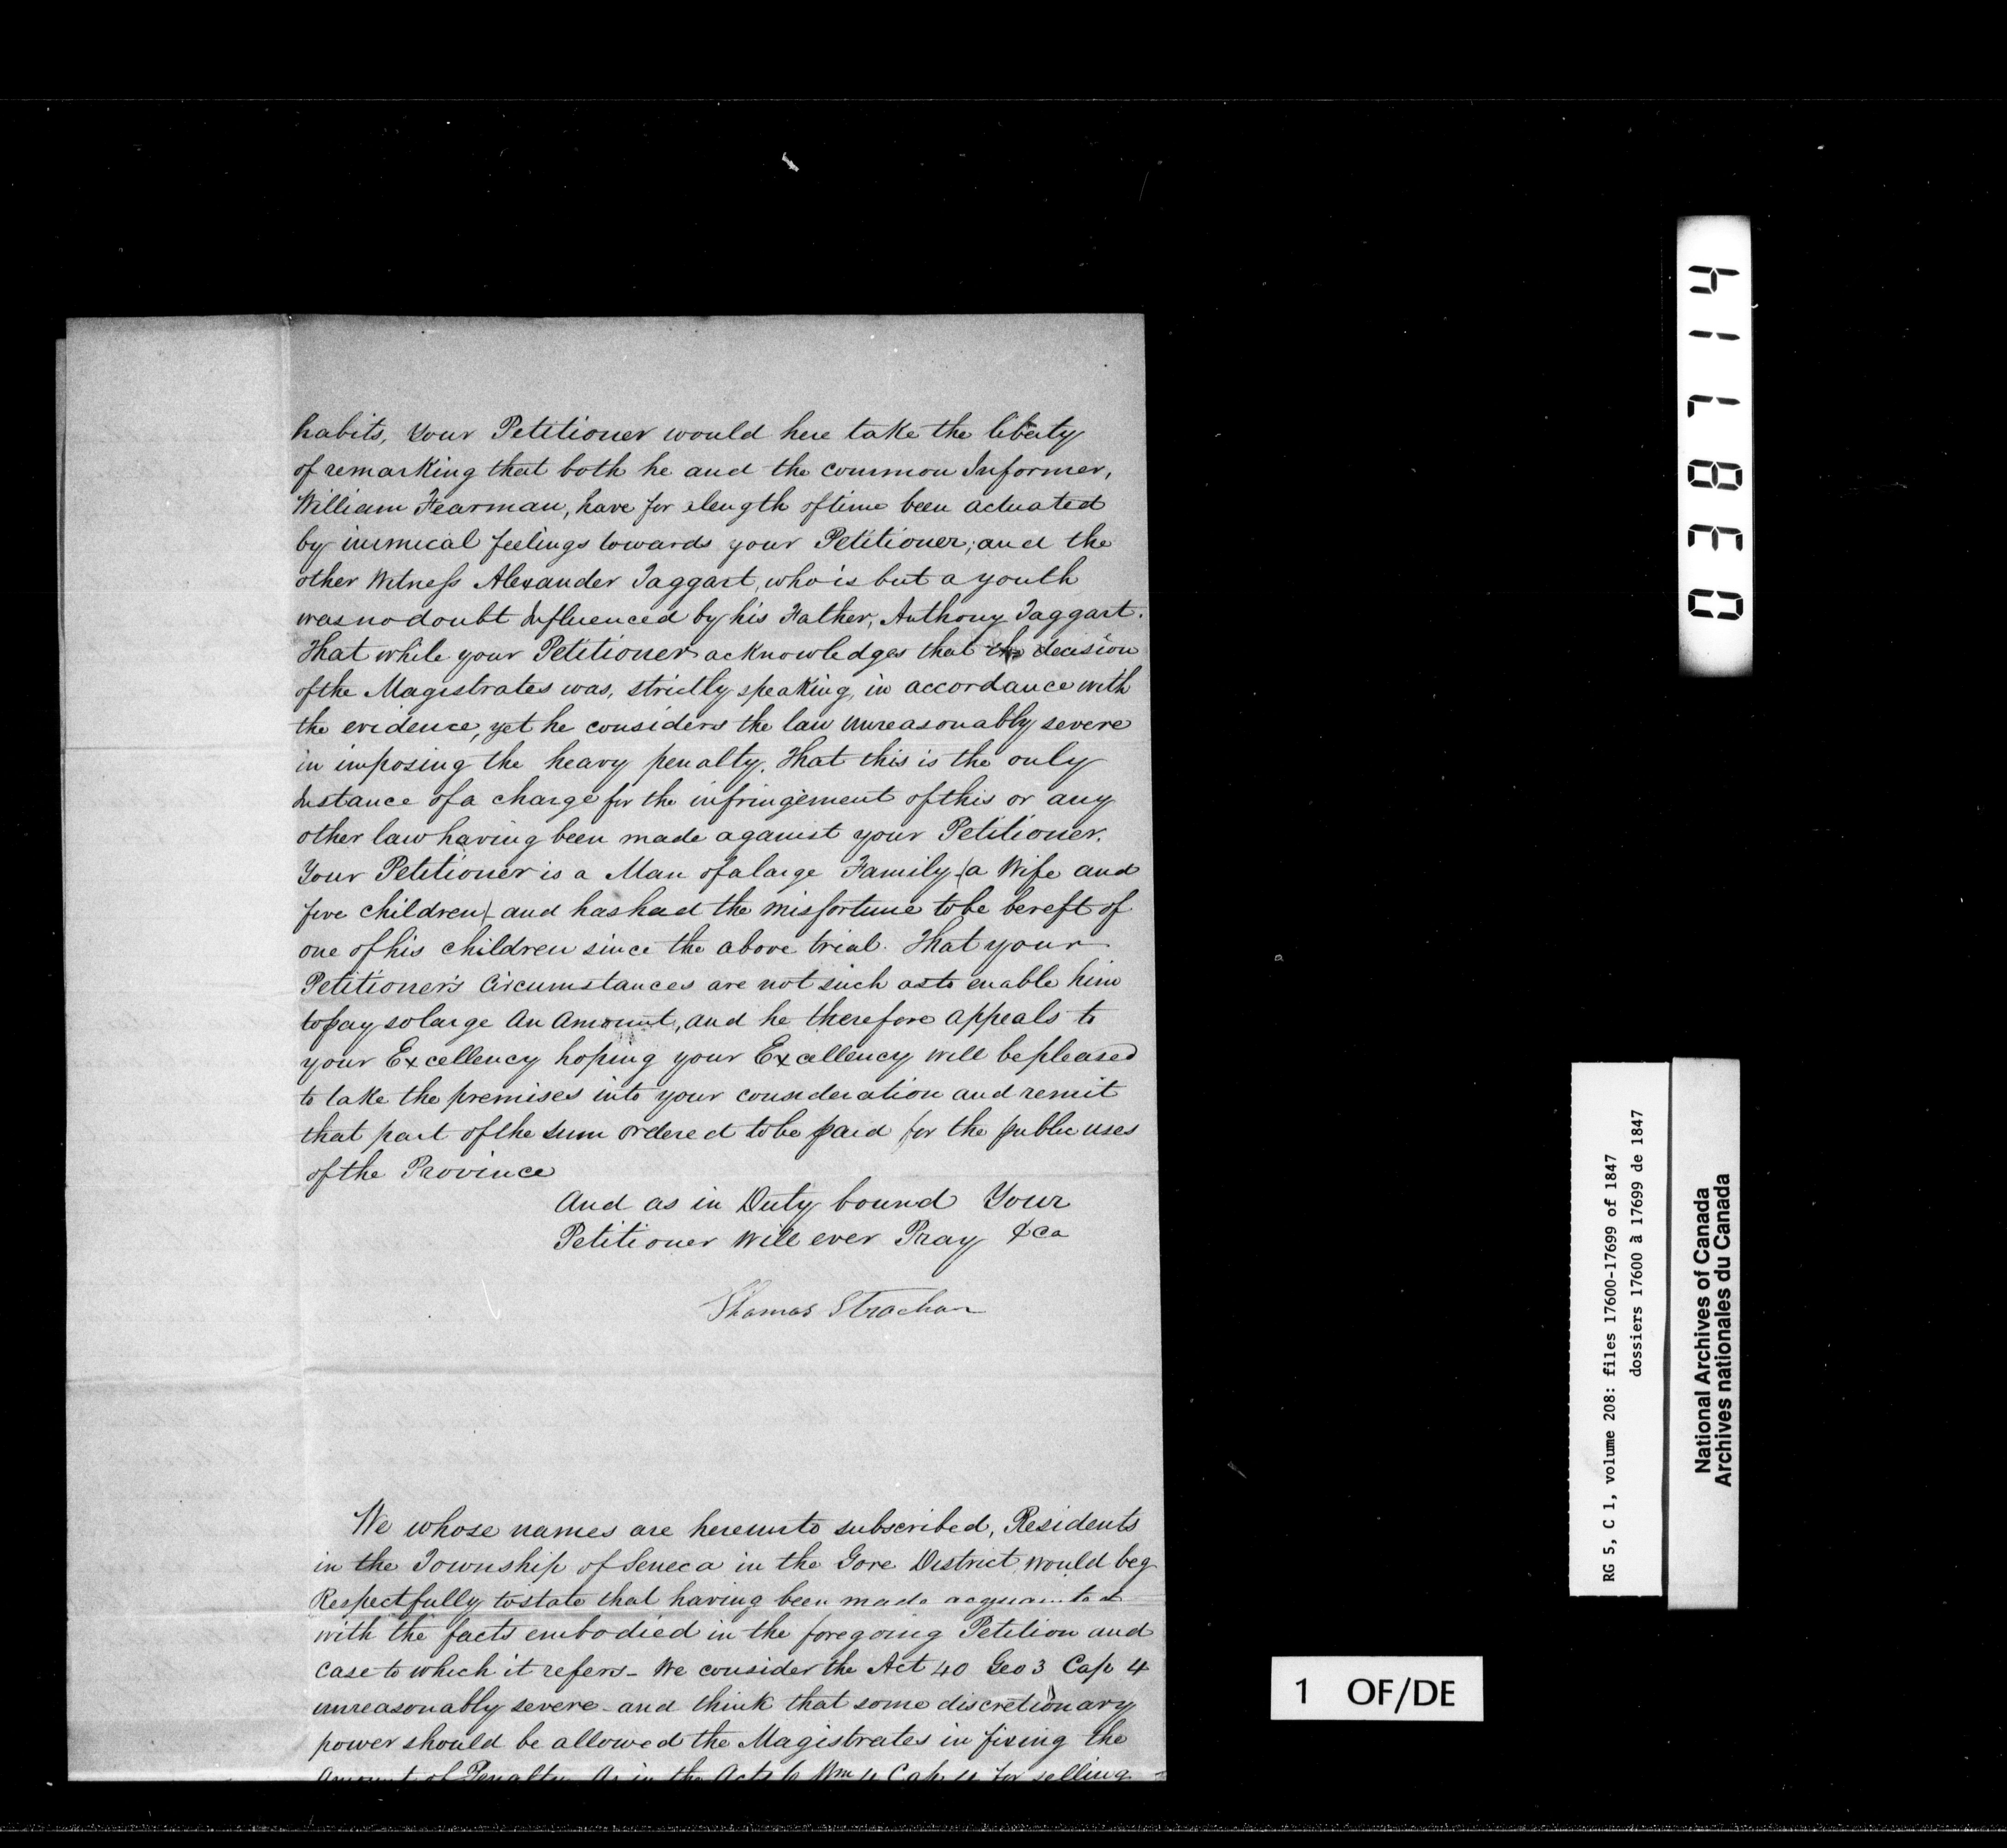 habits, Your Petitioner would here take the liberty
of remarking that both he and the common Informer,
William Fearman, have for a length of time been actuated
by inimical feelings towards your Petitioner; and the
other Witness Alexander Taggart, who is but a youth
was no doubt Influenced by his Father, Anthony Taggart.
That while your Petitioner acknowledges that the decision
of the Magistrates was, strictly speaking, in accordance with
the evidence, yet he considers the law unreasonably severe
in imposing the heavy penalty. That this is the only
Instance of a charge for the infringement of this or any
other law having been made against your Petitioner.
Your Petitioner is a Man of a large Family (a Wife and
five children) and has had the misfortune to be bereft of
one of his children since the above trial. That your
Petitioner's Circumstances are not such as to enable him
to pay so large an amount, and he therefore appeals to
your Excellency hoping your Excellency will be pleased
to take the premises into your consideration and remit
that part of the sum ordered to be paid for the public uses
of the Province
And as in Duty bound Your
Petitioner will ever Pray &ca
Thomas Strachan
We whose names are hereunto subscribed, Residents
in the Township of Seneca in the Gore District, would beg
Respectfully to state that having been made acquainted
with the facts embodied in the foregoing Petition and
case to which it refers - We consider the Act 40 Geo 3 Cap 4
unreasonably severe - and think that some discretionary
power should be allowed the Magistrates in fixing the
Amount of Penalty As in the Act 6 Wm 4 Cap 4 for selling
037814
RG 5, C 1, volume 208: files 17600-17699 of 1847
dossiers 17600 à 17699 de 1847
National Archives of Canada
Archives nationales du Canada
1 OF/DE